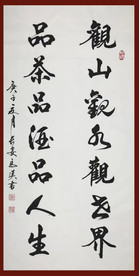 觀山觀水觀世界
品茶品酒品人生
庚子五月